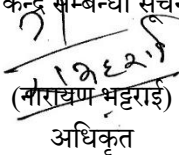 केन्द्र सम्बन्धी सूचन
(नारायण भट्टराई)
अधिकृत